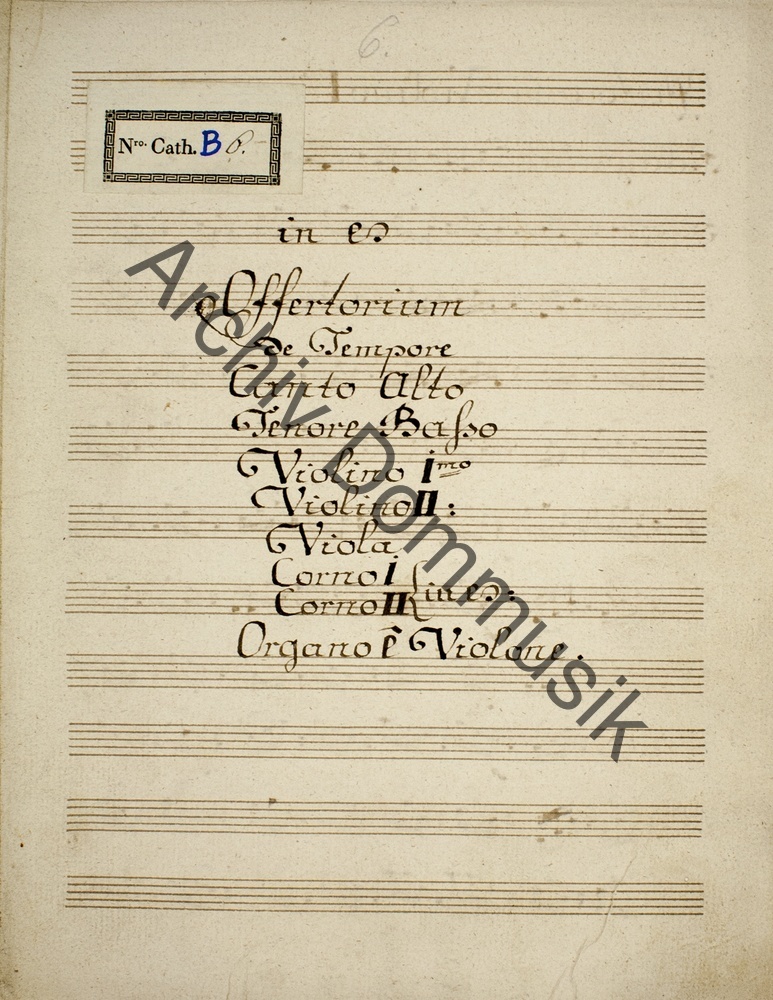 6.
Nro. Cath. B 6.
in es
Offertorium
de Tempore
Canto Alto
Tenore Baſso
Violino Imo
Violino II:
Viola
Corno I
Corno II } in es:
Organo è Violone.
Archiv Dommusik